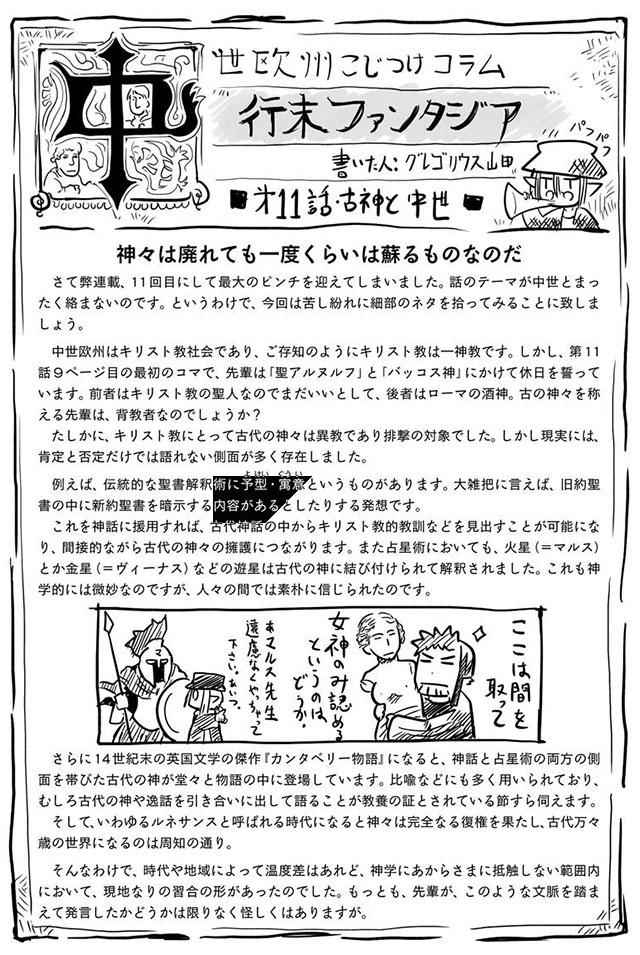 中世欧州こじつけコラム
行末ファンタジア
書いた人:グレゴリウス山田
パフパフ
才11話・古神と中世
神々は廃れても一度くらいは蘇るものなのだ
さて弊連載、11回目にして最大のピンチを迎えてしまいました。話のテーマが中世とまっ
たく絡まないのです。というわけで、今回は苦し紛れに細部のネタを拾ってみることに致しま
しょう。
中世欧州はキリスト教社会であり、ご存知のようにキリスト教は一神教です。しかし、第11
話9ページ目の最初のコマで、先輩は「聖アルヌルフ」と「バッコス神」にかけて休日を誓って
います。前者はキリスト教の聖人なのでまだいいとして、後者はローマの酒神。古の神々を称
える先輩は、背教者なのでしょうか?
たしかに、キリスト教にとって古代の神々は異教であり排撃の対象でした。しかし現実には、
肯定と否定だけでは語れない側面が多く存在しました。
例えば、伝統的な聖書解釈術に予型・寓意というものがあります。大雑把に言えば、旧約聖
よけい ぐうい
書の中に新約聖書を暗示する内容があるとしたりする発想です。
これを神話に援用すれば、古代神話の中からキリスト教的教訓などを見出すことが可能にな
り、間接的ながら古代の神々の擁護につながります。また占星術においても、火星(=マルス)
とか金星(=ヴィーナス)などの遊星は古代の神に結び付けられて解釈されました。これも神
学的には微妙なのですが、人々の間では素朴に信じられたのです。
ここは間を
取って
女神のみ認める
というのは、
どうか。
あマルス先生
遠慮なくやっちゃって
下さい。あいつ。
さらに14世紀末の英国文学の傑作『カンタベリー物語』になると、神話と占星術の両方の側
面を帯びた古代の神が堂々と物語の中に登場しています。比喩などにも多く用いられており、
むしろ古代の神や逸話を引き合いに出して語ることが教養の証とされている節すら伺えます。
そして、いわゆるルネサンスと呼ばれる時代になると神々は完全なる復権を果たし、古代万々
歳の世界になるのは周知の通り。
そんなわけで、時代や地域によって温度差はあれど、神学にあからさまに抵触しない範囲内
において、現地なりの習合の形があったのでした。もっとも、先輩が、このような文脈を踏ま
えて発言したかどうかは限りなく怪しくはありますが。